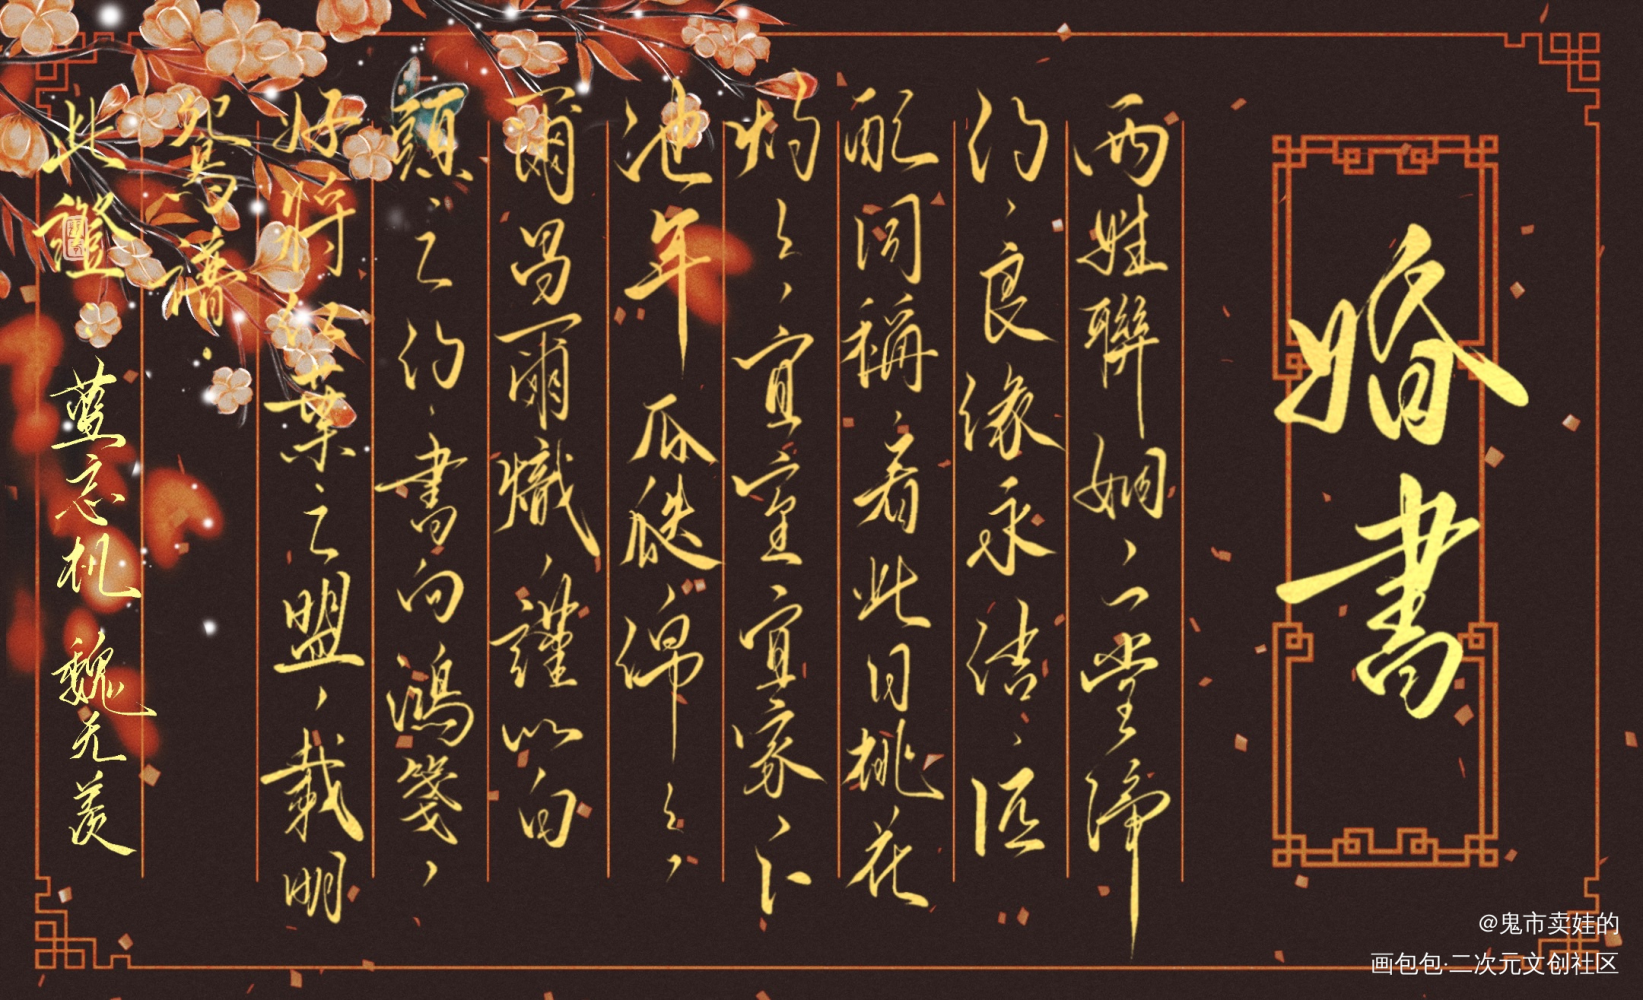 婚書
两姓聯姻，一堂締
约，良缘永结，匹
配同稱，看此日桃花
灼灼，宜室宜家，卜
他年瓜瓞绵绵，
爾昌爾熾，謹以白
頭之约，書向鴻箋，
好将红葉之盟，載明
鸳譜。
此證。 蓝忘机 魏无羡
@鬼市卖娃的
画包包·二次元文创社区